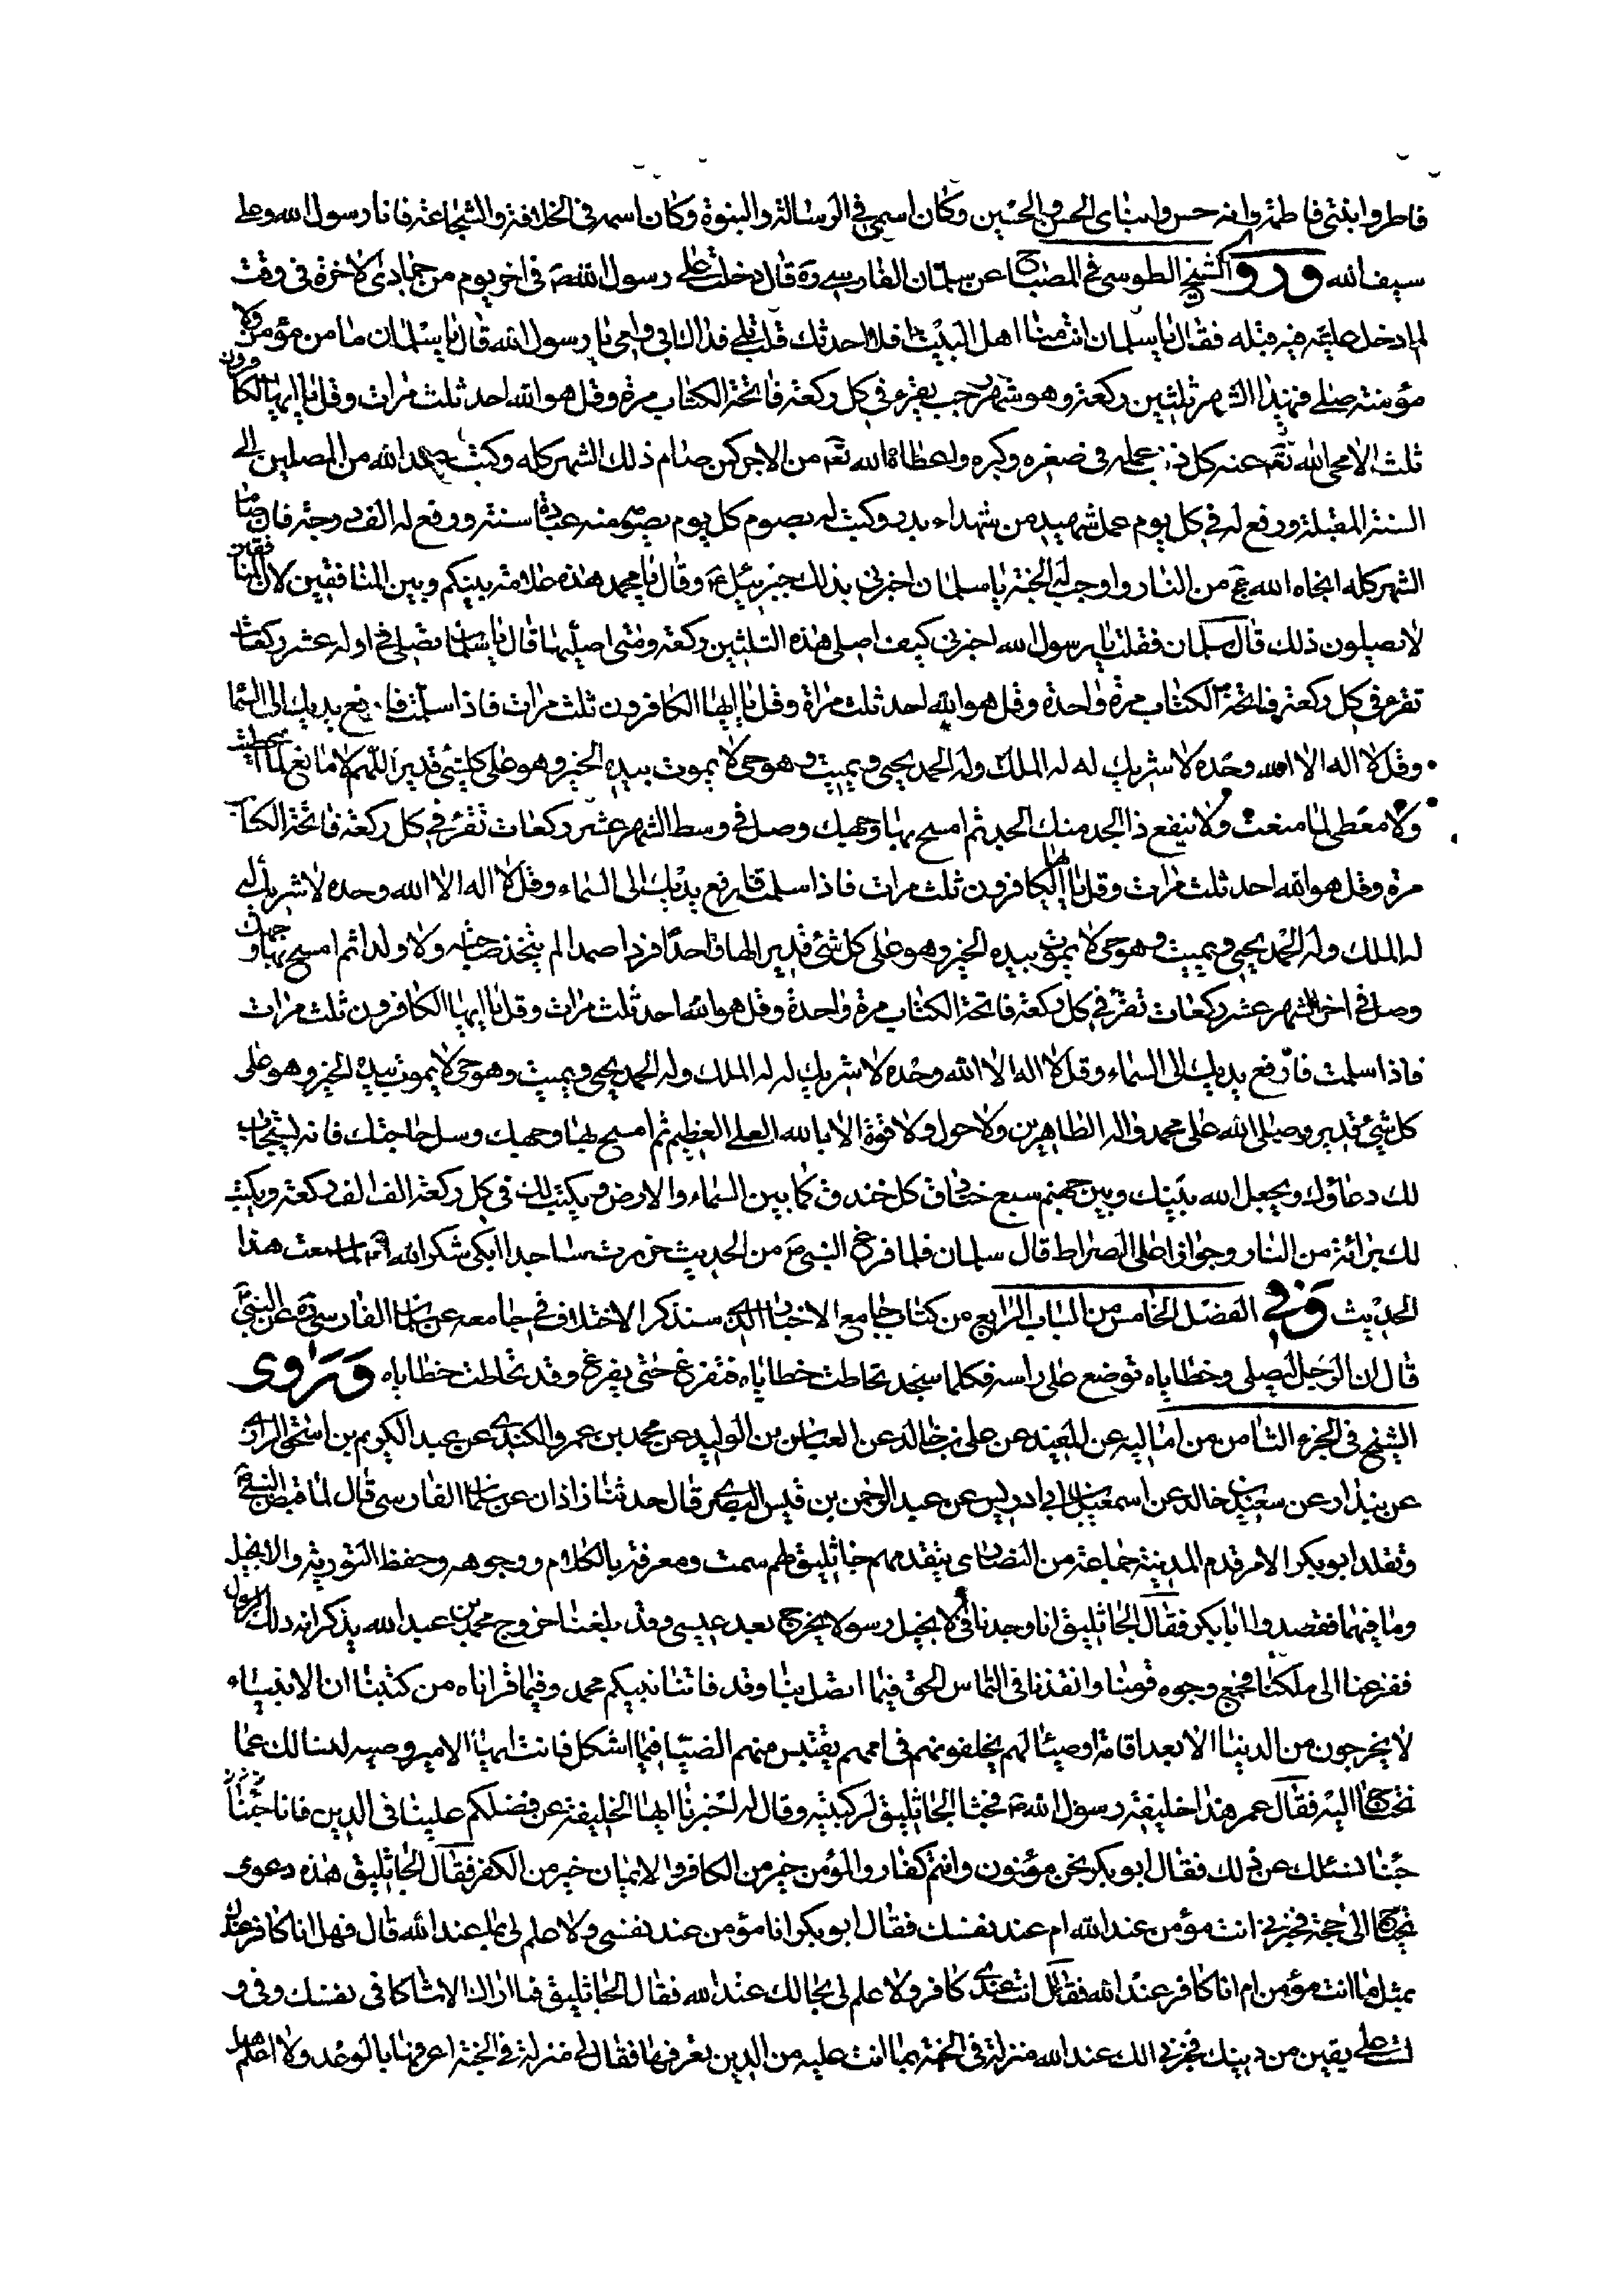 فاطر وابنتي فاطمة وابنه حسن وابناى الحسن والحسين وكان اسمى فى الرسالة والنبوة وكان اسمه فى الخلافة والشجاعة فانا رسول الله وعلى
سيف الله وروى الشيخ الطوسى فى المصباح عن سلمان الفارسى ره قال دخلت على رسول الله ص فى اخر يوم من جمادى الاخرة فى وقت
لم ادخل عليه فيه قبله فقال يا سلمان انت منا اهل البيت افلا احدثك قلت بلى فداك ابى وامى يا رسول الله قال يا سلمان ما من مؤمن ولا
مؤمنة صلى فى هذا الشهر ثلثين ركعة وهو شهر رجب يقرء فى كل ركعة فاتحة الكتاب مرة وقل هو الله احد ثلث مرات وقل يا ايها الكافرون
ثلث الا محى الله تع عنه كل ذنب عمله فى صغره وكبره واعطاه الله تع من الاجر كمن صام ذلك الشهر كله وكتب عند الله من المصلين الى
السنة المقبلة ورفع له فى كل يوم عمل شهيد من شهداء بدر وكتب له بصوم كل يوم يصومه منه عبادة سنة ورفع له الف درجة فان صام
الشهر كله انجاه الله عج من النار واوجب له الجنة يا سلمان اخبرنى بذلك جبرئيل ع وقال يا محمد هذه علامة بينكم وبين المنافقين لان المنافقين
لا يصلون ذلك قال سلمان فقلت يا رسول الله اخبرنى كيف اصلى هذه الثلثين ركعة ومتى اصليها قال يا سلمان تصلى فى اوله عشر ركعات
تقرء فى كل ركعة فاتحة الكتاب مرة واحدة وقل هو الله احد ثلث مرات وقل يا ايها الكافرون ثلث مرات فاذا سلمت فارفع يديك الى السماء
وقل لا اله الا الله وحده لا شريك له له الملك وله الحمد يحيى ويميت وهو حى لا يموت بيده الخير وهو على كل شئ قدير اللهم لا مانع لما اعطيت
ولا معطى لما منعت ولا ينفع ذا الجد منك الجد ثم امسح بها وجهك وصل فى وسط الشهر عشر ركعات تقرء فى كل ركعة فاتحة الكتاب
مرة وقل هو الله احد ثلث مرات وقل يا ايها الكافرون ثلث مرات فاذا سلمت فارفع يديك الى السماء وقل لا اله الا الله وحده لا شريك له
له الملك وله الحمد يحيى ويميت وهو حى لا يموت بيده الخير وهو على كل شئ قدير الها واحدا فردا صمدا لم يتخذ صاحبة ولا ولدا ثم امسح بها وجهك
وصل فى اخر الشهر عشر ركعات تقرء فى كل ركعة فاتحة الكتاب مرة واحدة وقل هو الله احد ثلث مرات وقل يا ايها الكافرون ثلث مرات
فاذا سلمت فارفع يديك الى السماء وقل لا اله الا الله وحده لا شريك له له الملك وله الحمد يحيى ويميت وهو حى لا يموت بيده الخير وهو على
كل شئ قدير وصلى الله على محمد واله الطاهرين ولا حول ولا قوة الا بالله العلى العظيم ثم امسح بها وجهك وسل حاجتك فانه يستجاب
لك دعاؤك ويجعل الله بينك وبين جهنم سبع خنادق كل خندق كما بين السماء والارض ويكتب لك فى كل ركعة الف الف ركعة ويكتب
لك برائة من النار وجوازا على الصراط قال سلمان فلما فرغ النبى ص من الحديث خررت ساجدا ابكى شكرا لله تع لما سمعت هذا
الحديث وفى الفصل الخامس من الباب الرابع من كتاب جامع الاخبار الذى سنذكر الاختلاف فى جامعه عن سلمان الفارسى ره عن النبى ص
قال ان الرجل ليصلى وخطاياه توضع على راسه فكلما سجد تحاطت خطاياه فتفرغ حتى يفرغ وقد تحاطت خطاياه وروى
الشيخ فى الجزء الثامن من اماليه عن المفيد عن على بن خالد عن العباس بن الوليد عن محمد بن عمرو الكندى عن عبد الكريم بن اسحق الرازى
عن بندار عن سعيد بن خالد عن اسمعيل بن ابى ادريس عن عبد الرحمن بن قيس البصرى قال حدثنا زاذان عن سلمان الفارسى قال لما قبض النبى ص
وتقلد ابو بكر الامر قدم المدينة جماعة من النصارى يتقدمهم جاثليق لهم سمت ومعرفة بالكلام ووجوهه وحفظ التورية والانجيل
وما فيهما فقصدوا ابا بكر فقال الجاثليق انا وجدنا فى الانجيل رسولا يخرج بعد عيسى وقد بلغنا خروج محمد بن عبد الله يذكر انه ذلك الرسول
ففزعنا الى ملكنا فجمع وجوه قومنا وانفذنا فى التماس الحق فيما اتصل بنا وقد فاتنا نبيكم محمد وفيما قراناه من كتبنا ان الانبياء
لا يخرجون من الدنيا الا بعد اقامة اوصياء لهم يخلفونهم فى اممهم يقتبس منهم الضياء فيما اشكل فانت ايها الامير وصيه لنسالك عما
نحتاج اليه فقال عمر هذا خليفة رسول الله ص فجثا الجاثليق لركبتيه وقال له اخبرنا ايها الخليفة عن فضلكم علينا فى الدين فانا جئنا
جئنا نسئلك عن ذلك فقال ابو بكر نحن مؤمنون وانتم كفار والمؤمن خير من الكافر والايمان خير من الكفر فقال الجاثليق هذه دعوى
تحتاج الى حجة فخبرنى انت مؤمن عند الله ام عند نفسك فقال ابو بكر انا مؤمن عند نفسى ولا علم لى بما عند الله قال فهل انا كافر عندك
بمثل ما انت مؤمن ام انا كافر عند الله فقال انت عندى كافر ولا علم لى بحالك عند الله فقال الجاثليق فما اراك الا شاكا فى نفسك وفى و
لست على يقين من دينك فخبرنى الك عند الله منزلة فى الجنة بما انت عليه من الدين تعرفها فقال لى منزلة فى الجنة اعرفها بالوعد ولا اعلم هل